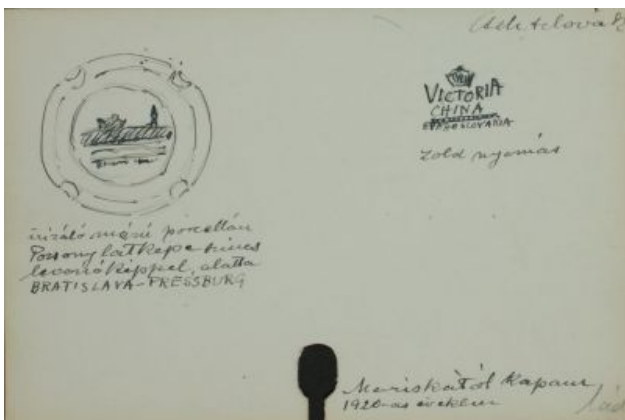 VICTORIA
CHINA
zöld nyomás
irizáló mázú porcellán
Pozsony látképe színes
levonóképpel, alatta
BRATISLAVA-PRESSBURG
Mariskától kaptam
1920-as években